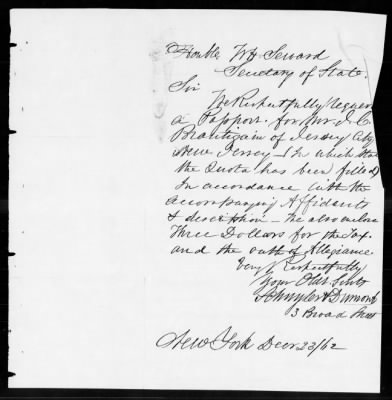 Honble Wm Seward
Secretary of State.
Sir
We Respectfully request
a Passport for Mr. J. C.
of Jersey City
New Jersey (In which State
the Quota has been filled)
In accordance with the
accompanying Affidavits
& description - We also enclose
Three Dollars for the Tax
and the oath of Allegiance.
Very Respectfully
Your Obt Svts
Schuyler & Dumont
3 Broad Street
New York Decr 23/62